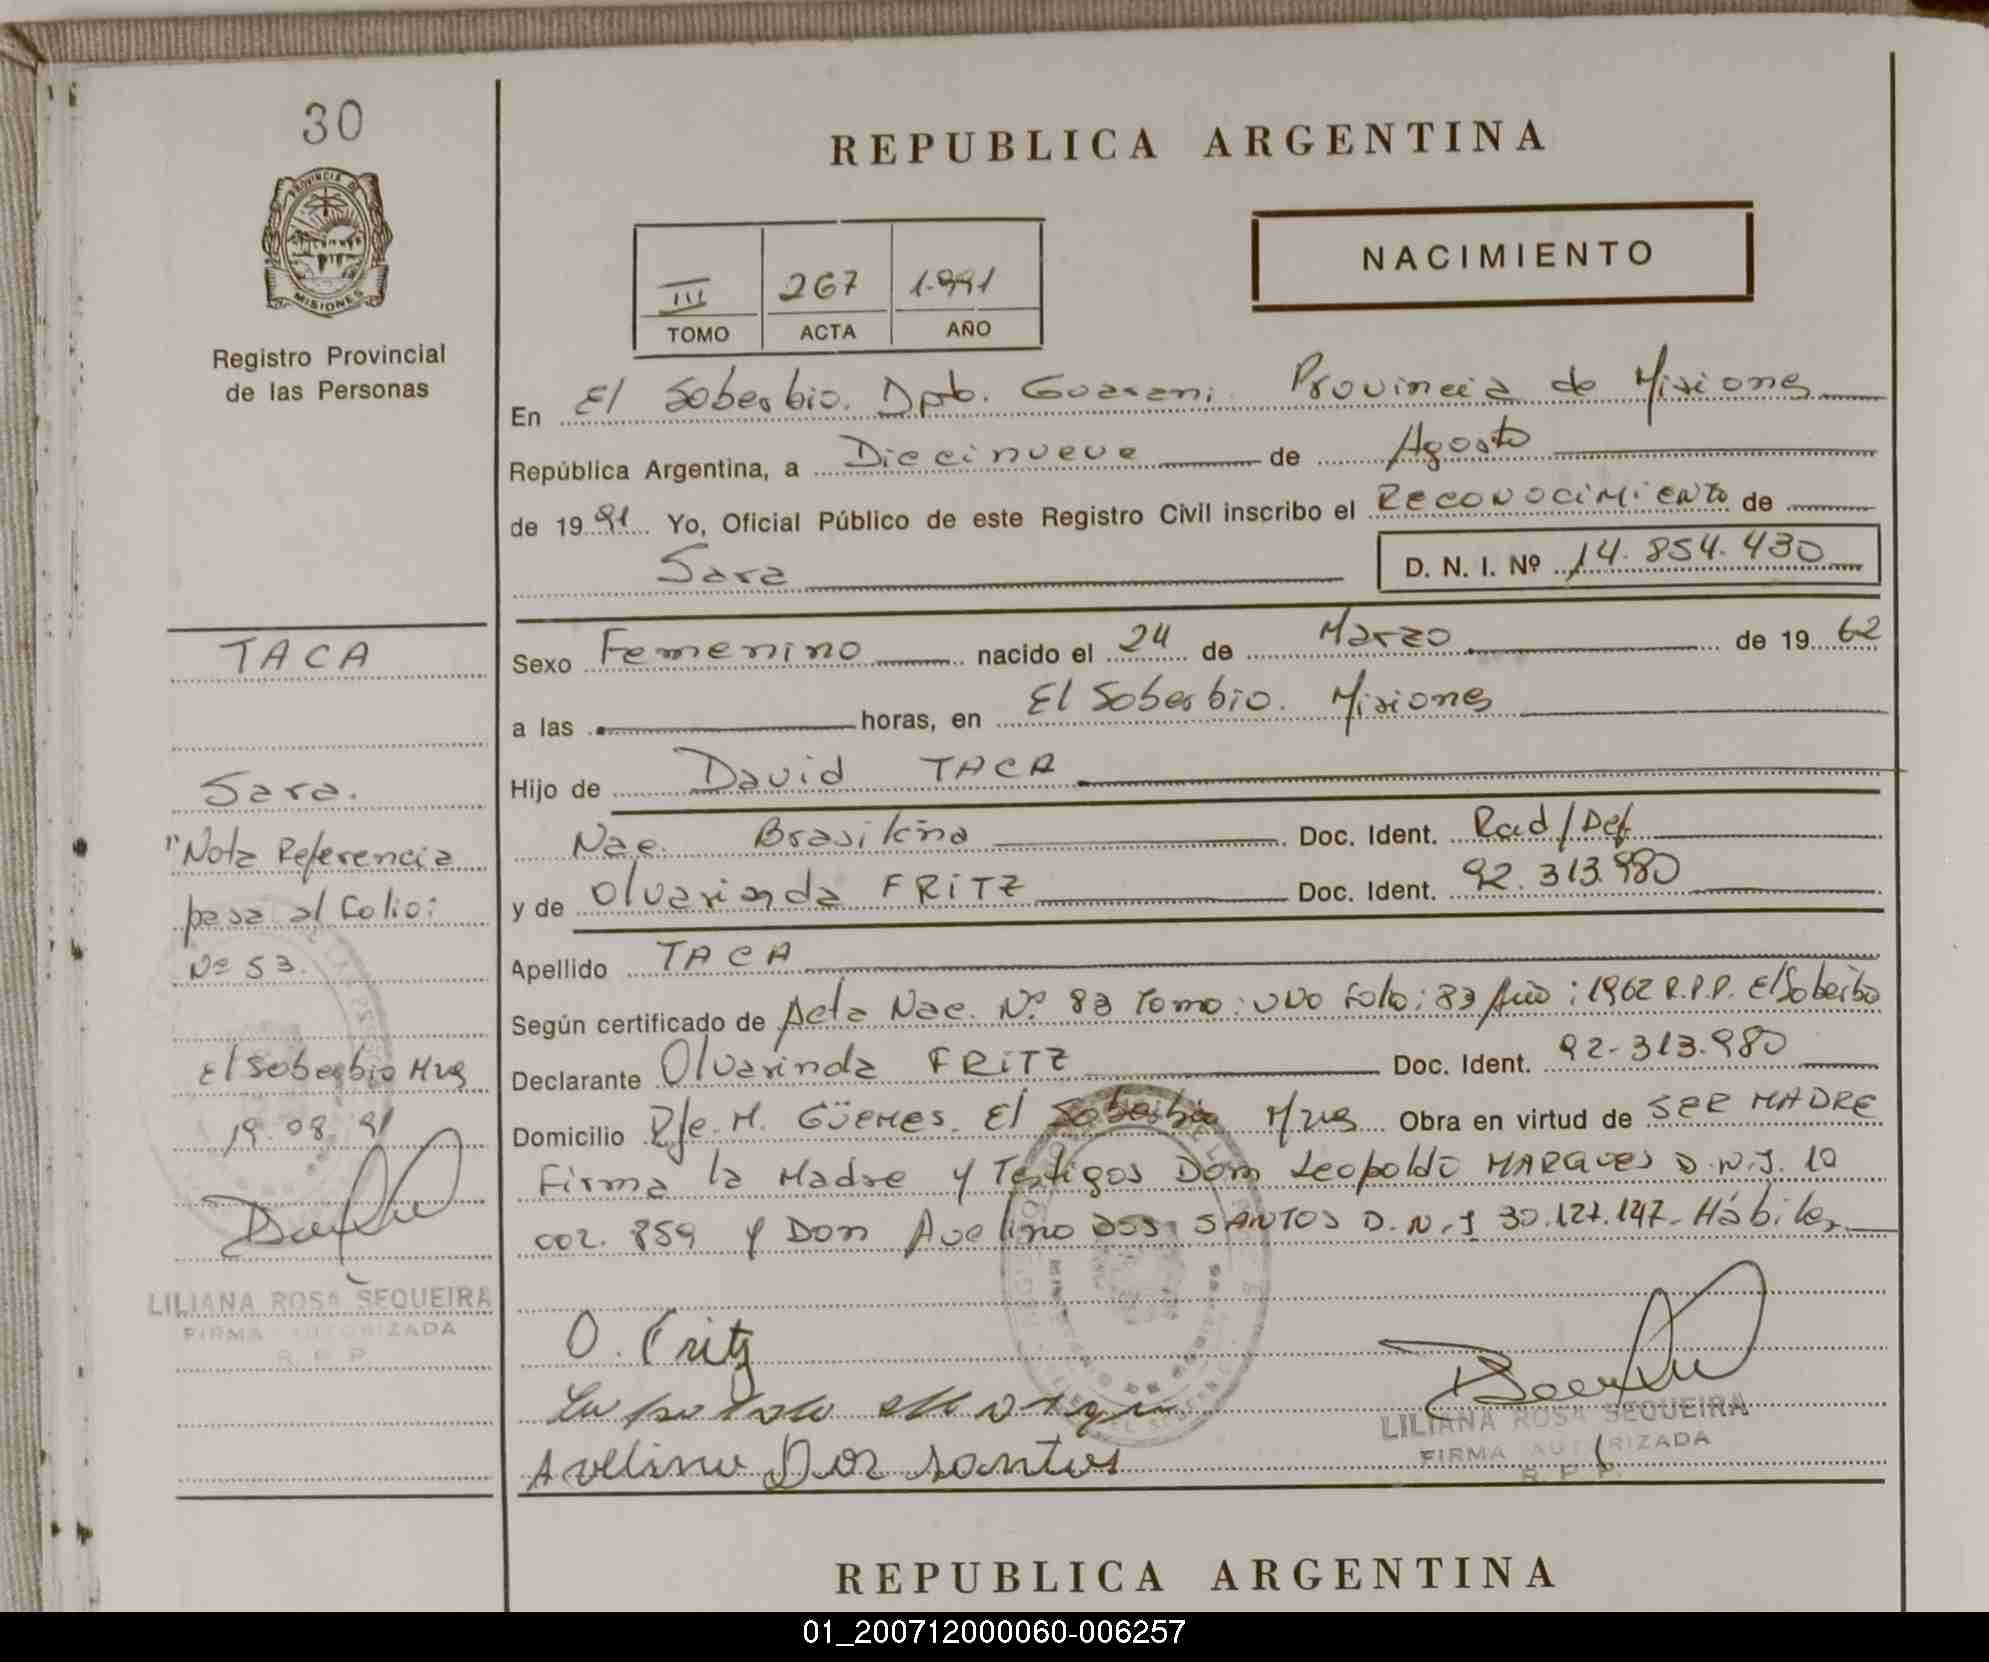 30
PROVINCIA DE
MISIONES
Registro Provincial
de las Personas
REPUBLICA ARGENTINA
NACIMIENTO
III 267 1.991
TOMO ACTA AÑO
En El Soberbio. Dpto. Guarani. Provincia de Misiones
República Argentina, a Diecinueve de Agosto
de 1991 Yo, Oficial Público de este Registro Civil inscribo el Reconocimiento de
Sara D. N. I. Nº 14.854.430
Sexo Femenino nacido el 24 de Marzo de 1962
a las horas, en El Soberbio. Misiones
Hijo de David TACA
Nac. Brasileña Doc. Ident. Rad/Def
y de Olvarinda FRITZ Doc. Ident. 92.313.980
Apellido TACA
Según certificado de Acta Nac. Nº 83 Tomo: UNO Folio: 83 Año: 1962 R.P.P. El Soberbio
Declarante Olvarinda FRITZ Doc. Ident. 92-313.980
Domicilio Pje. M. GÜEMES. El Soberbio Mnes Obra en virtud de SER MADRE
Firma la Madre y Testigos Dom Leopoldo MARQUES D.N.I. 10
002.859 y Don Avelino DOS SANTOS D.N.I 30.127.147. Hábiles
O. Fritz
Avelino Dos santos
LILIANA ROSA SEQUEIRA
FIRMA AUTORIZADA
R. P. P.
TACA
Sara.
"Nota Referencia
pasa al Folio:
Nº 53.
El Soberbio Mnes
19.08.91
LILIANA ROSA SEQUEIRA
FIRMA AUTORIZADA
R. P. P.
REPUBLICA ARGENTINA
01_200712000060-006257